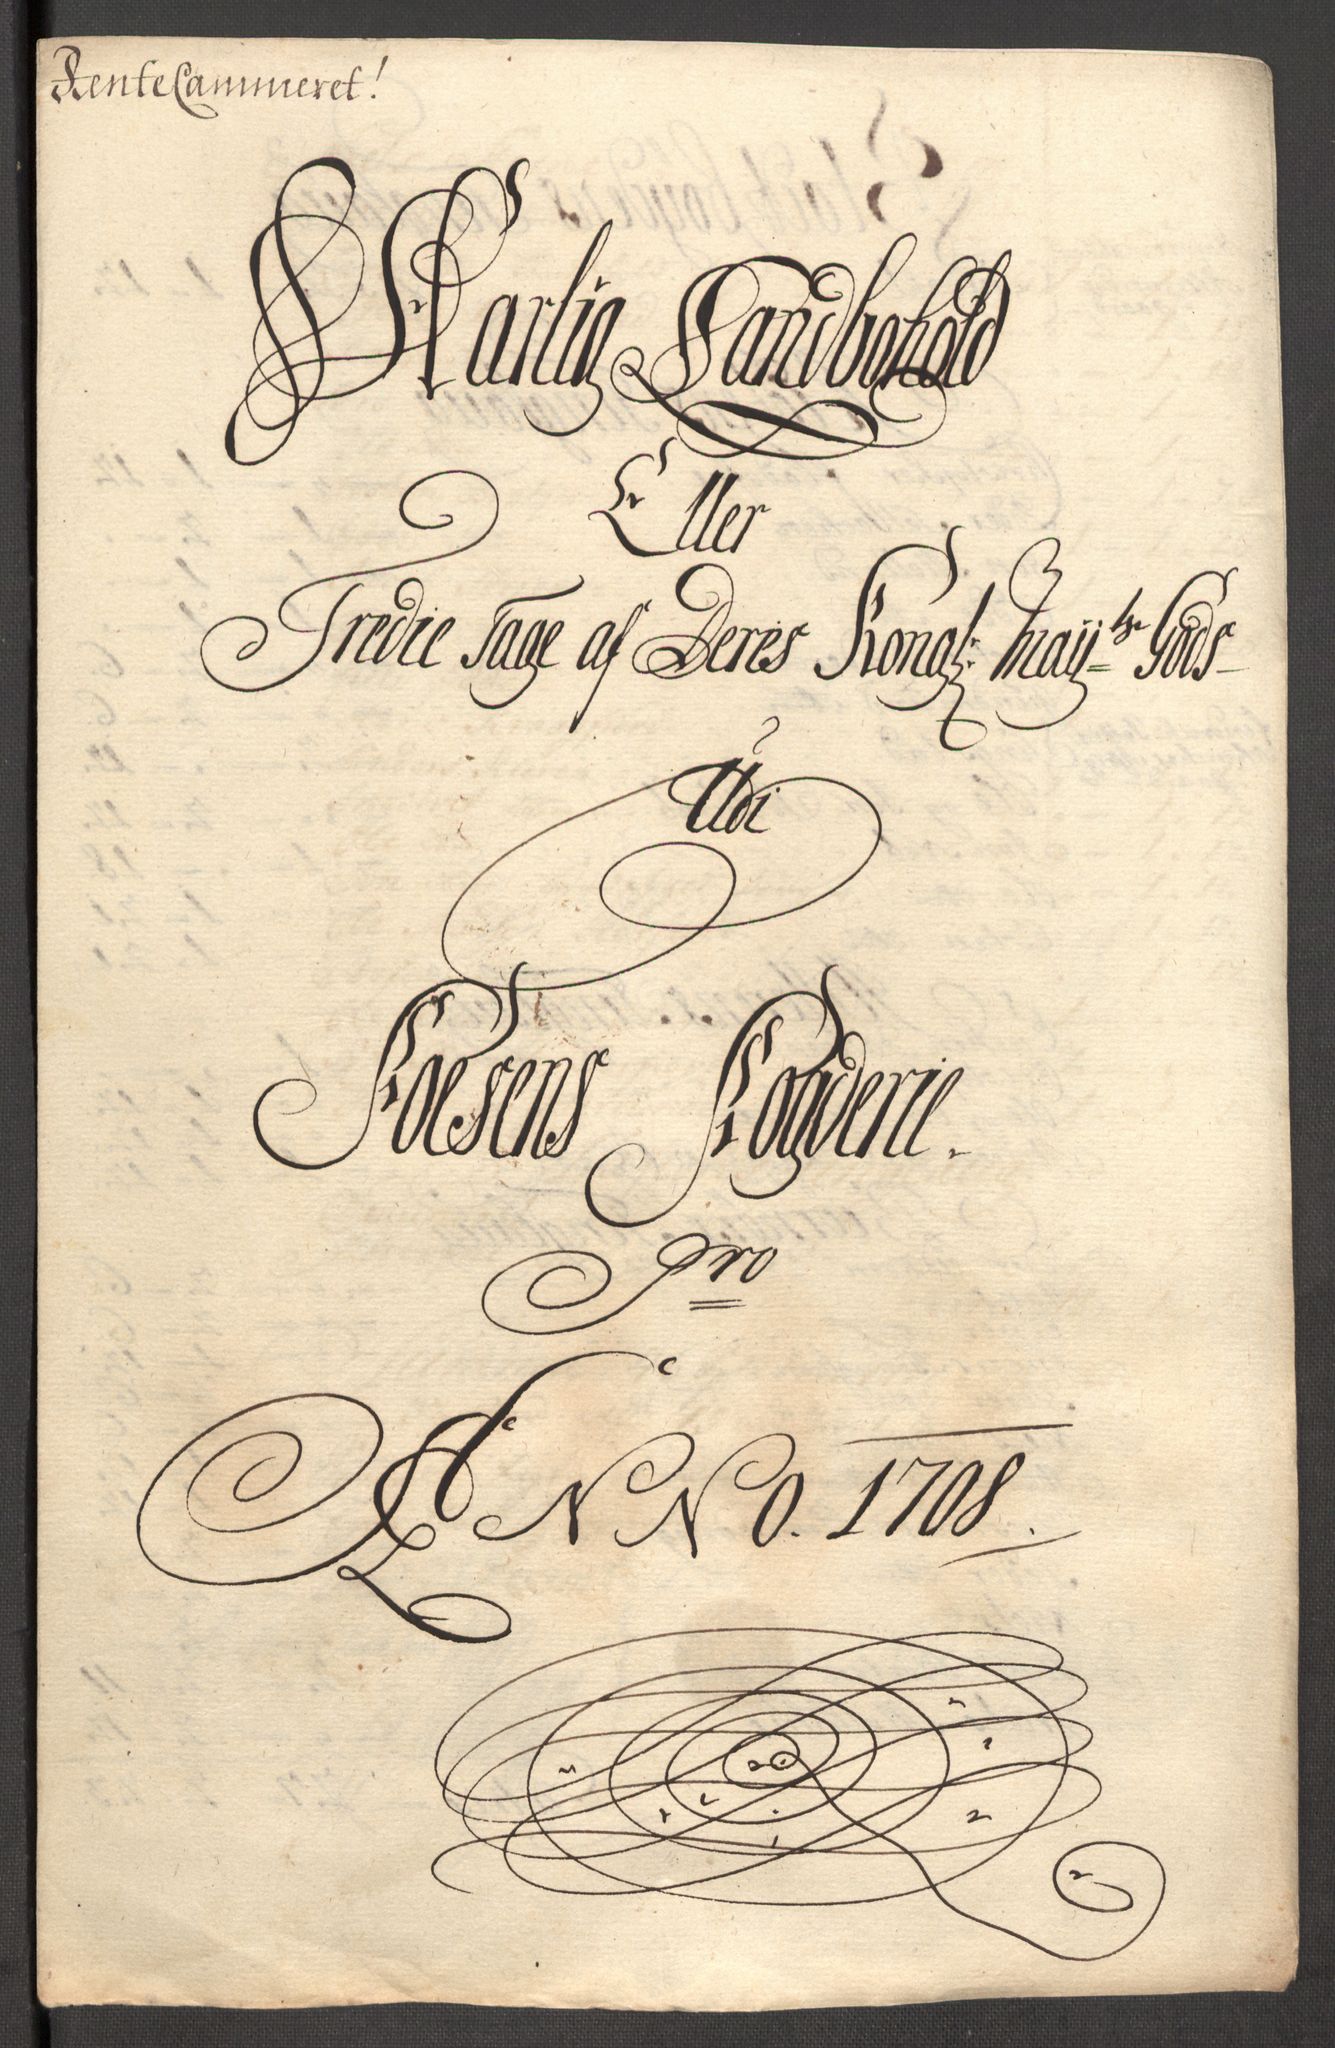 RenteCammeret!
Aarlig Landbohold
Eller
Tredie Tage af Deres Kongl: Maÿ=ts Gods
Udi
Foesens Fogderie.
Pro
ANNO. 1708.